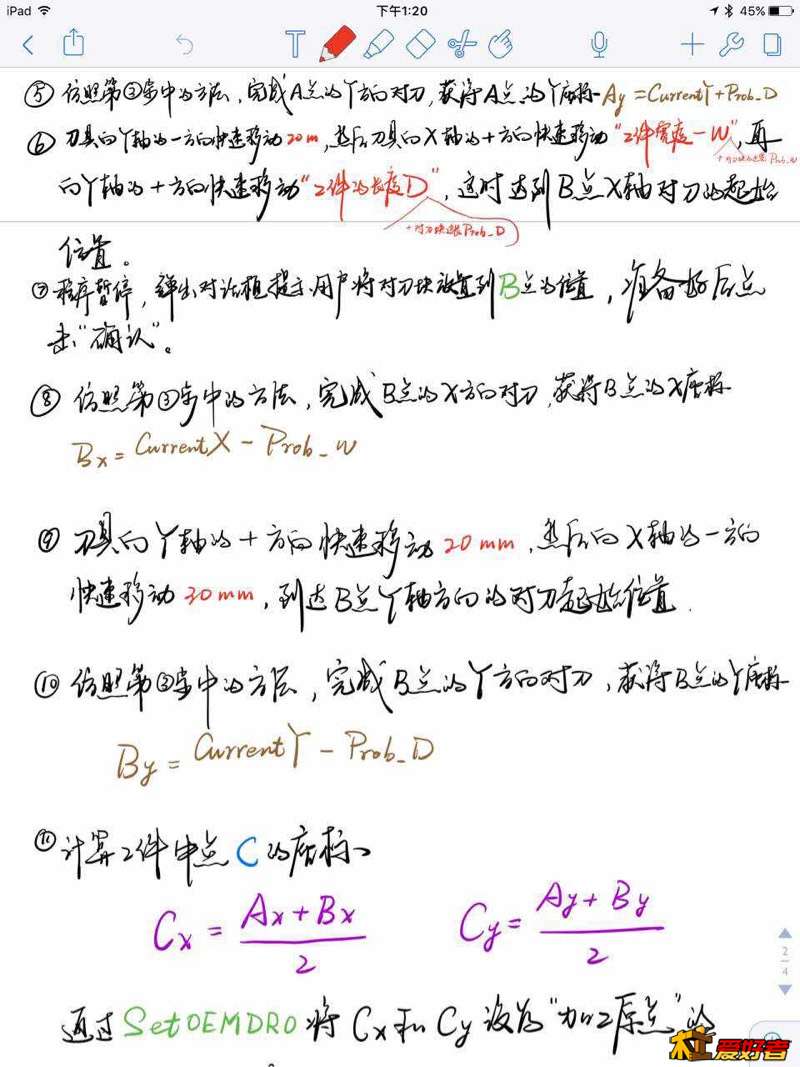 iPad 下午1:20 45%
⑤ 仿照第③步中的方法,完成A点的Y方向对刀,获得A点的Y座标 Ay = CurrentY + Prob_D
⑥ 刀具向Y轴的一方向快速移动20m,然后刀具向X轴的+方向快速移动"工件宽度-W",再
+对刀块的宽 Prob_W
向Y轴的+方向快速移动"工件的长度D",这时达到B点X轴对刀的起始
+对刀块的长Prob_D
位置。
⑦ 程序暂停,弹出对话框提示用户将对刀块放置到B点的位置,准备好后点
击"确认"。
⑧ 仿照第③步中的方法,完成B点的X方向对刀,获得B点的X座标
Bx = CurrentX - Prob_W
⑨ 刀具向Y轴的+方向快速移动20mm,然后向X轴的一方向
快速移动30mm,到达B点Y轴方向的对刀起始位置.
⑩ 仿照第③步中的方法,完成B点的Y方向对刀,获得B点的Y座标
By = CurrentY - Prob_D
⑪ 计算工件中点C的座标、
Cx = Ax + Bx / 2 Cy = Ay + By / 2
通过SetOEMDRO将Cx和Cy设为"加工原点"的
2
4
爱好者